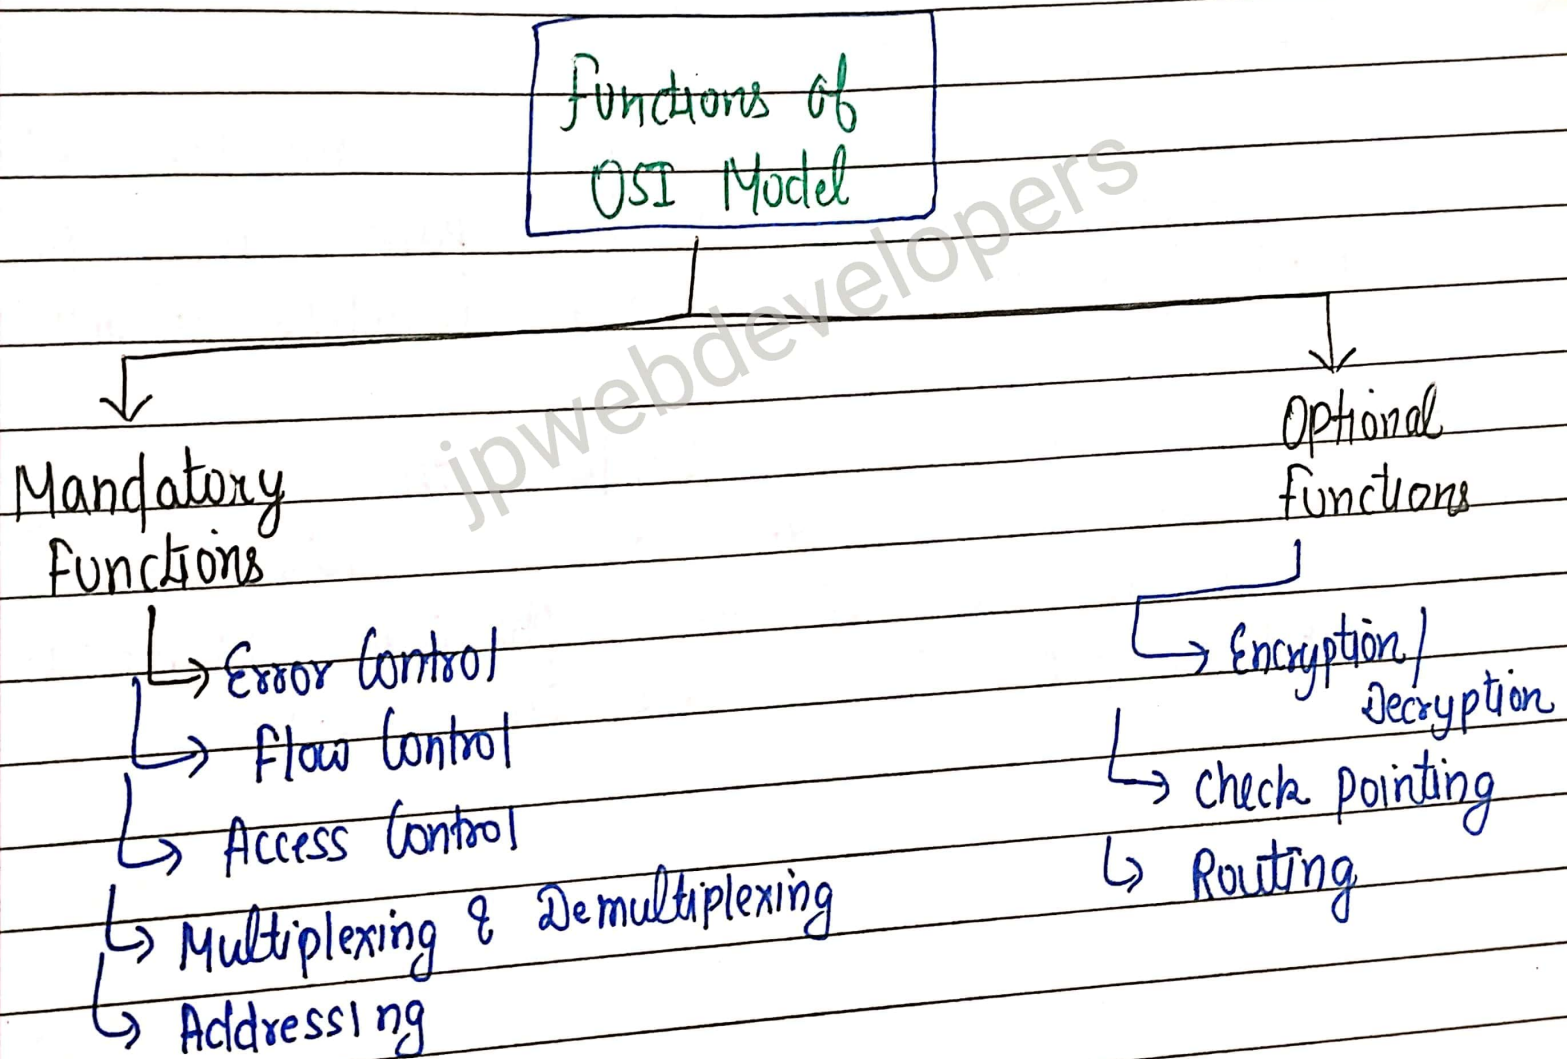 Functions of
OSI Model
jpwebdevelopers
Mandatory
Functions
Error Control
Flow Control
Access Control
Multiplexing & Demultiplexing
Addressing
Optional
Functions
Encryption/
Decryption
Check pointing
Routing